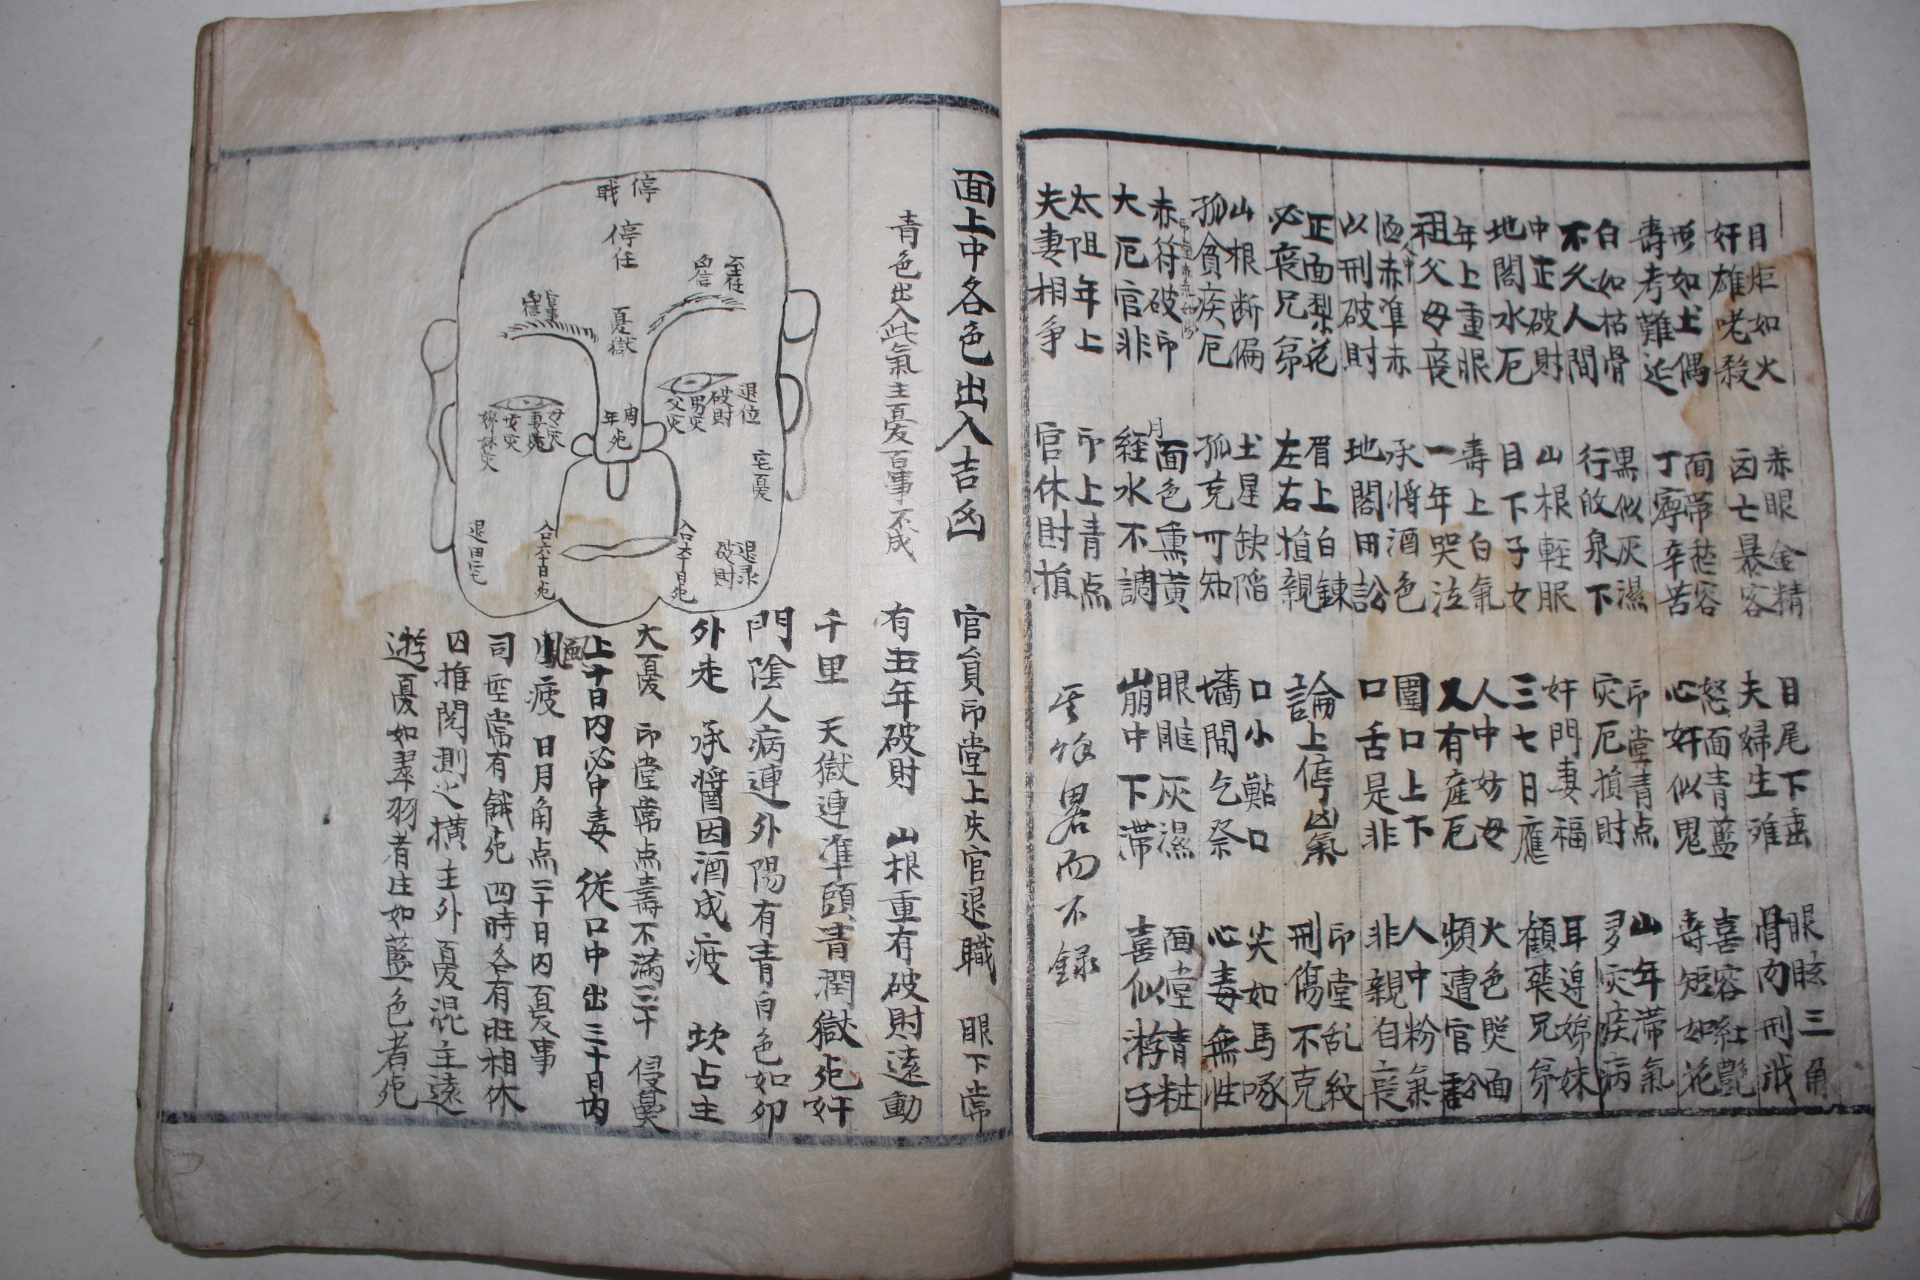 目炬如火
奸雄咾殺
赤眼金精
凶亡暴客
目尾下垂
夫婦生难
眼眩三角
骨肉刑戎
形如土偶
壽考難延
面帶愁容
丁寧辛苦
怒面青藍
心奸似鬼
喜容紅艷
壽短如花
白如枯骨
不久人間
黑似灰濕
行啟泉下
印堂青点
灾厄損財
山年滞氣
多灾疾病
中正破財
地閣水厄
山根輕眼
目下子女
奸門妻福
三七日應
耳邊娣妹
顴藥兄弟
年上重眼
祖父母喪
壽上白氣
一年哭泣
人中妨母
又有産厄
火色煛面
頻遭官訟
酒赤準赤
以刑破財
承將酒色
地閣田訟
圍口上下
口舌是非
人中粉氣
非親自喪
正面梨花
必喪兄弟
眉上白鍊
左右損親
論上停凶氣
印堂乱紋
刑傷不克
山根断偏
孤貧疾厄
土星缺陷
孤克可知
口小點口
墻間乞祭
尖如馬啄
心毒無性
赤符破印
大厄官非
面色熏黃
月
経水不調
眼眶灰濕
崩中下滞
面堂精粧
喜似游子
太阻年上
夫妻相争
印上青点
官休財損
畧而不録
面上中各色出入吉凶
官員印堂上失官退職 眼下常
青色出入此氣主憂百事不成
有五年破財 山根重有破財遠動
千里 天獄連準頭青潤獄死奸
門陰人病連外陽有青白色如卯
外走 承醬因酒成疲 坎占主
大憂 印堂常点壽不滿三十 侵鼻
上十日內必中毒 從口中出三十日內
風疲 日月角点二十日內憂事
司空常有餓死 四時各有旺相休
囚推閱測之橫主外憂混主遠
遊憂如翠羽者庄如藍色者死
停
職
停任
憂獄
退位
破財
男灾
父灾
女灾
娣妹灾
年
死
宅憂
退田宅
合六十日死
合六十日死
退录
破財